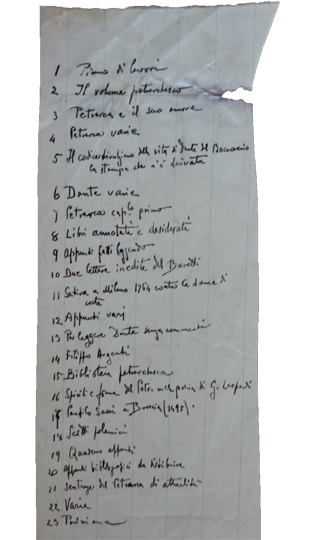 1 Piano di lavori
2 Il volume petrarchesco
3 Petrarca e il suo amore
4 Petrarca varie
5 Il codice della vita di Dante del Boccaccio
la stampa che n'è derivata
6 Dante varie
7 Petrarca cap. primo
8 Libri annotati e desiderati
9 Appunti fatti leggendo
10 Due lettere inedite del Baretti
11 Satira a Milano 1764 contro le dame di
corte
12 Appunti varj
13 Per leggere Dante senza commenti
14 Filippo Argenti
15 Biblioteca petrarchesca
16 Spiriti e forme del Petr. nella poesia di G. Leopardi
17 a Brescia (1495).
18 Scritti polemici
19 Quaderno appunti
20 Appunti bibliografici da
21 Sentenze del Petrarca di attualità
22 Varie
23